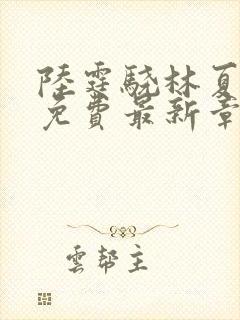 陸霆驍林夏
免費最新章
雲幫主